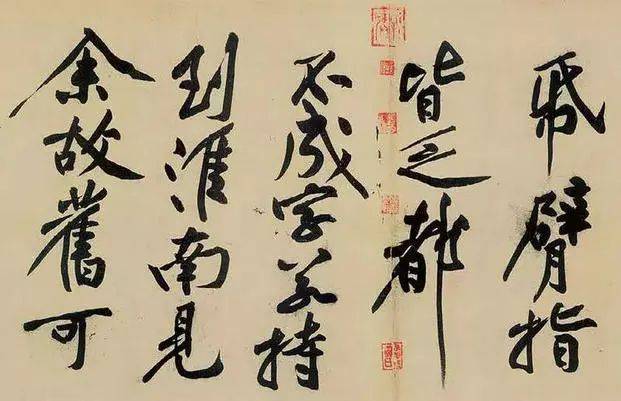 帋臂指
皆乏都
不成字若持
到淮南見
余故舊可